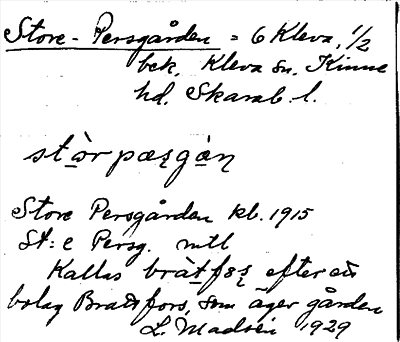 Store-Persgården = 6 Kleva, 1/2
bek. Kleva sn. Kinne
hd. Skarab. l.
stòr pæʂgàɳ
Store Persgården kb. 1915
St:e Persg. mtl
Kallas bràtfɔʂ efter ett
bolag Brattfors, som äger gården
L. Madsén 1929